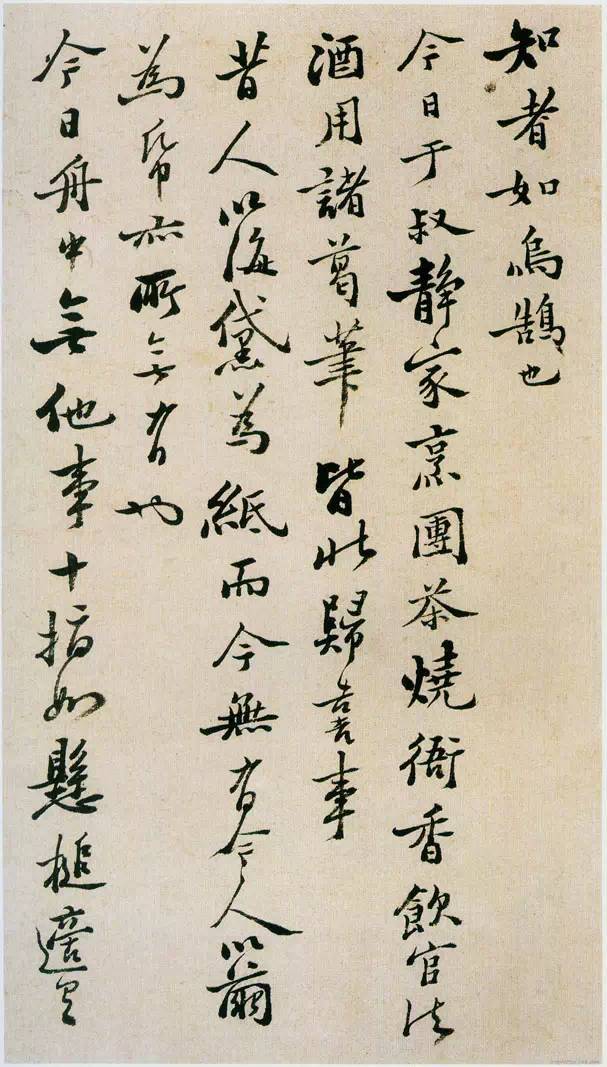 知者如烏鵲也
今日于叔靜家烹團茶燒衙香飲官法
酒用諸葛筆皆北歸喜事
昔人以海苔為紙而今無有今人以繭
為幣亦所無有也
今日舟中無他事十指如懸槌適有